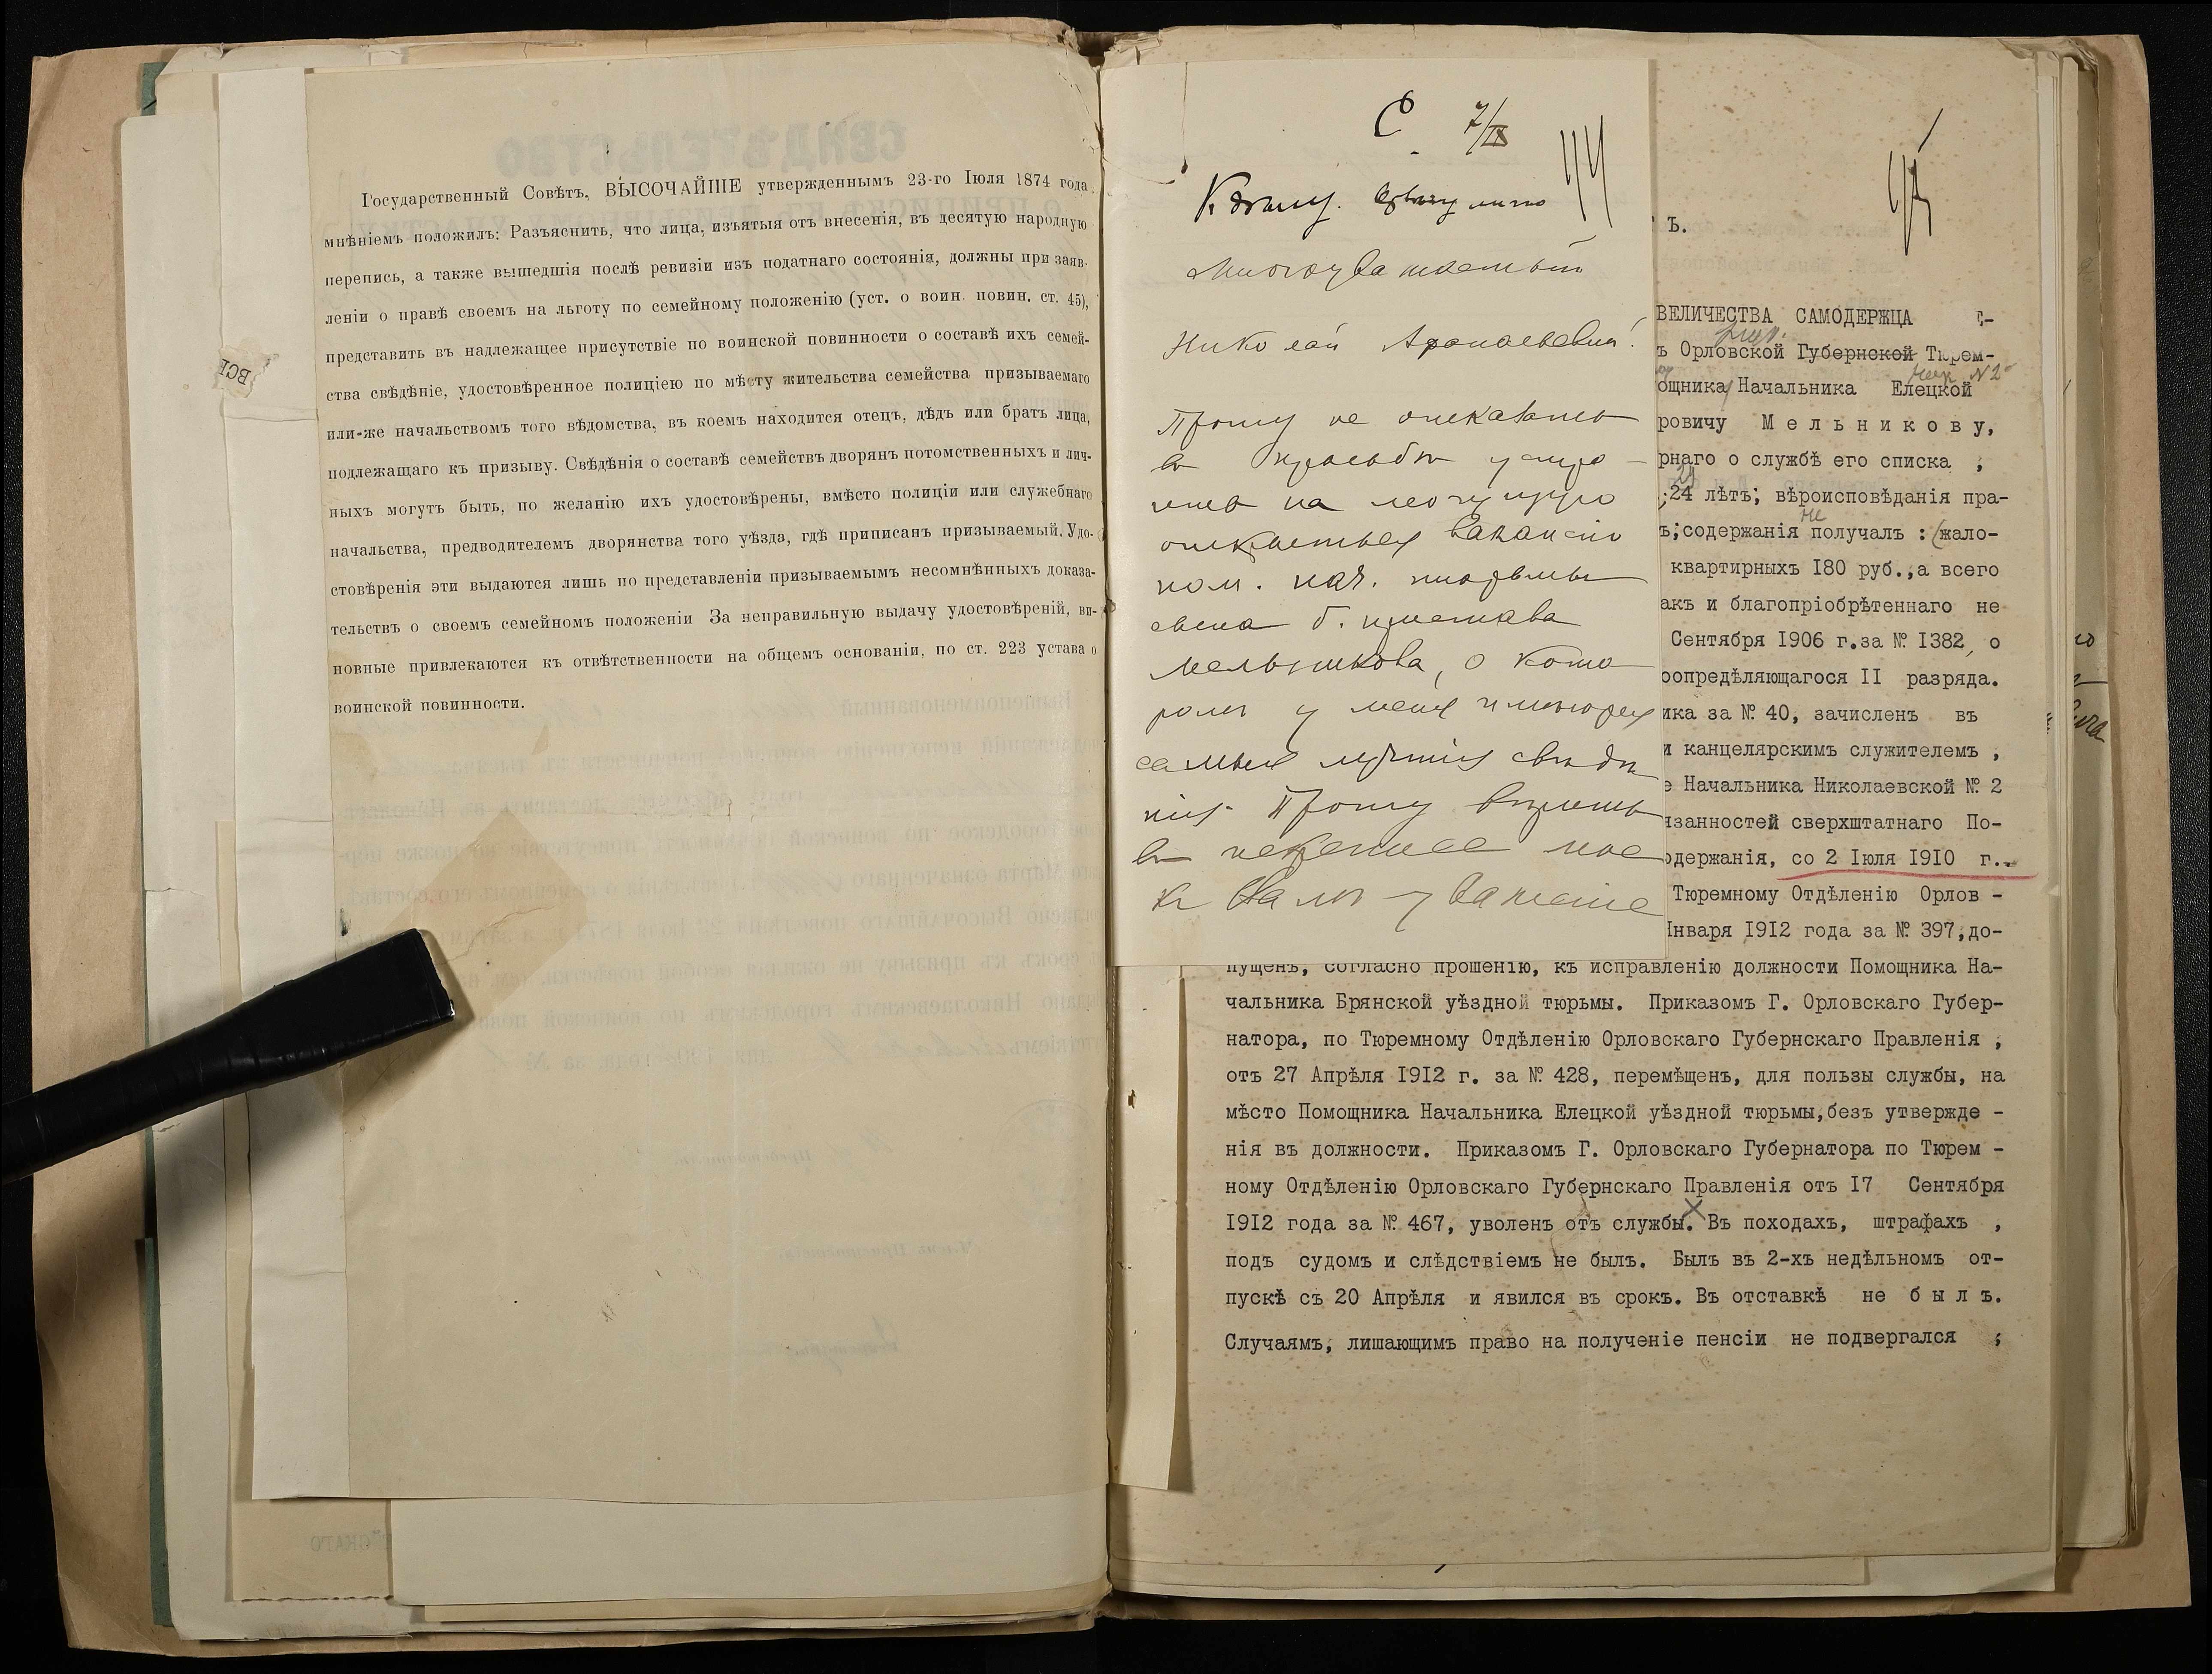 Государственный Совѣтъ, ВЫСОЧАЙШЕ утвержденнымъ 23-го Іюля 1874 года
мнѣніемъ положилъ: Разъяснить, что лица, изъятыя отъ внесенія, въ десятую народную
перепись, а также вышедшія послѣ ревизіи изъ податнаго состоянія, должны при заяв-
леніи о правѣ своемъ на льготу по семейному положенію (уст. о воин. повин. ст. 45),
представить въ надлежащее присутствіе по воинской повинности о составѣ ихъ семей-
ства свѣдѣніе, удостовѣренное полиціею по мѣсту жительства семейства призываемаго
или-же начальствомъ того вѣдомства, въ коемъ находится отецъ, дѣдъ или братъ лица,
подлежащаго къ призыву. Свѣдѣнія о составѣ семействъ дворянъ потомственныхъ и лич-
ныхъ могутъ быть, по желанію ихъ удостовѣрены, вмѣсто полиціи или служебнаго
начальства, предводителемъ дворянства того уѣзда, гдѣ приписанъ призываемый. Удо-
стовѣренія эти выдаются лишь по представленіи призываемымъ несомнѣнныхъ доказа-
тельствъ о своемъ семейномъ положеніи За неправильную выдачу удостовѣреній, ви-
новные привлекаются къ отвѣтственности на общемъ основаніи, по ст. 223 устава о
воинской повинности.
С. 7/IX
44
Многоуважаемый
Николай
Прошу не отказать
въ просьбѣ устро-
ить на могущую
открыться вакансію
пом. нач. тюрьмы
сына б. пристава
Мельникова, о кото
ромъ у меня имеются
самыя лучшія свѣдѣ
нія. Прошу
въ искреннее мое
къ Вамъ уваженіе
45
ъ.
ВЕЛИЧЕСТВА САМОДЕРЖЦА
ъ Орловской Губернской Тюрем-
ощника Начальника Елецкой
№ 2
ровичу Мельникову,
рнаго о службѣ его списка ;
;24 лѣтъ; вѣроисповѣданія пра-
не
ъ;содержанія получалъ : (жало-
квартирныхъ I80 руб.,а всего
акъ и благопріобрѣтеннаго не
Сентября I906 г.за № I382, о
оопредѣляющагося II разряда.
ика за № 40, зачисленъ въ
и канцелярскимъ служителемъ ,
е Начальника Николаевской № 2
язанностей сверхштатнаго По-
одержанія, со 2 Іюля I9I0 г..
Тюремному Отдѣленію Орлов -
Января I9I2 года за № 397,до-
пущенъ, согласно прошенію, къ исправленію должности Помощника На-
чальника Брянской уѣздной тюрьмы. Приказомъ Г. Орловскаго Губер-
натора, по Тюремному Отдѣленію Орловскаго Губернскаго Правленія ,
отъ 27 Апрѣля I9I2 г. за № 428, перемѣщенъ, для пользы службы, на
мѣсто Помощника Начальника Елецкой уѣздной тюрьмы,безъ утвержде -
нія въ должности. Приказомъ Г. Орловскаго Губернатора по Тюрем -
ному Отдѣленію Орловскаго Губернскаго Правленія отъ I7 Сентября
I9I2 года за № 467, уволенъ отъ службы. Въ походахъ, штрафахъ ,
подъ судомъ и слѣдствіемъ не былъ. Былъ въ 2-хъ недѣльномъ от-
пускѣ съ 20 Апрѣля и явился въ срокъ. Въ отставкѣ не былъ.
Случаямъ, лишающимъ право на полученіе пенсіи не подвергался ;